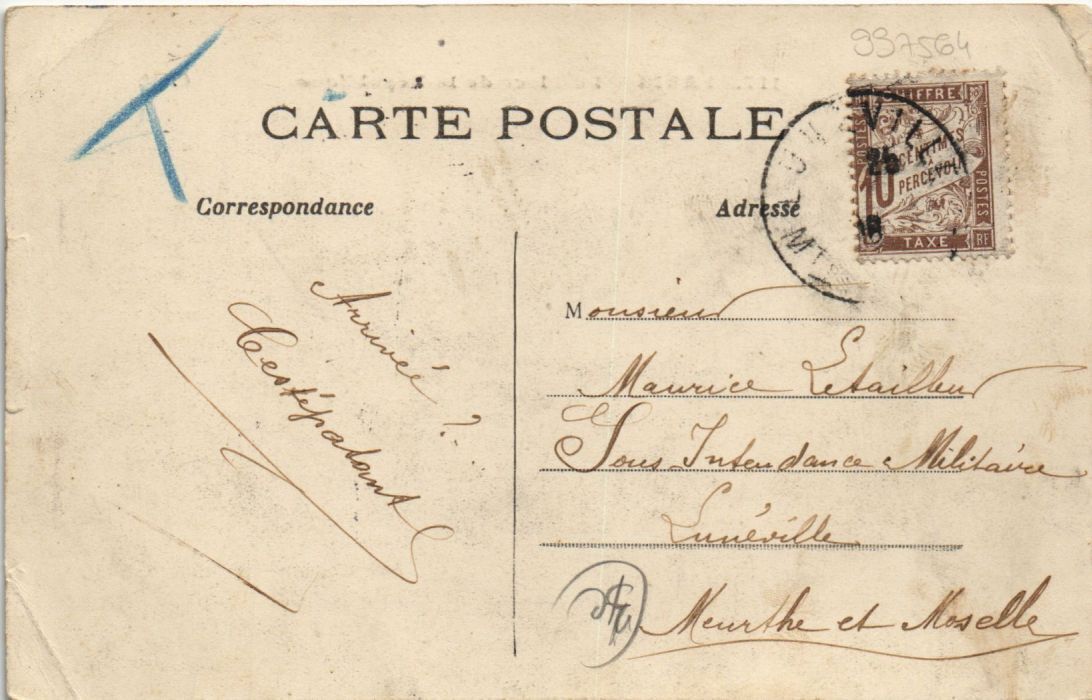 997564
CARTE POSTALE
Correspondance
Adresse
CHIFFRE
POSTES
10 CENTIMES
À
PERCEVOIR
POSTES
TAXE
RF
LUNÉVILLE
25
18
T
Arrivée ?
C'est épatant
Monsieur
Maurice Letailleur
Sous Intendance Militaire
Lunéville
Meurthe et Moselle